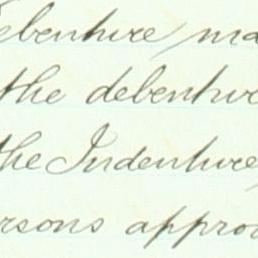 ebenture ma
the debentur
the Indenture
rsons approv